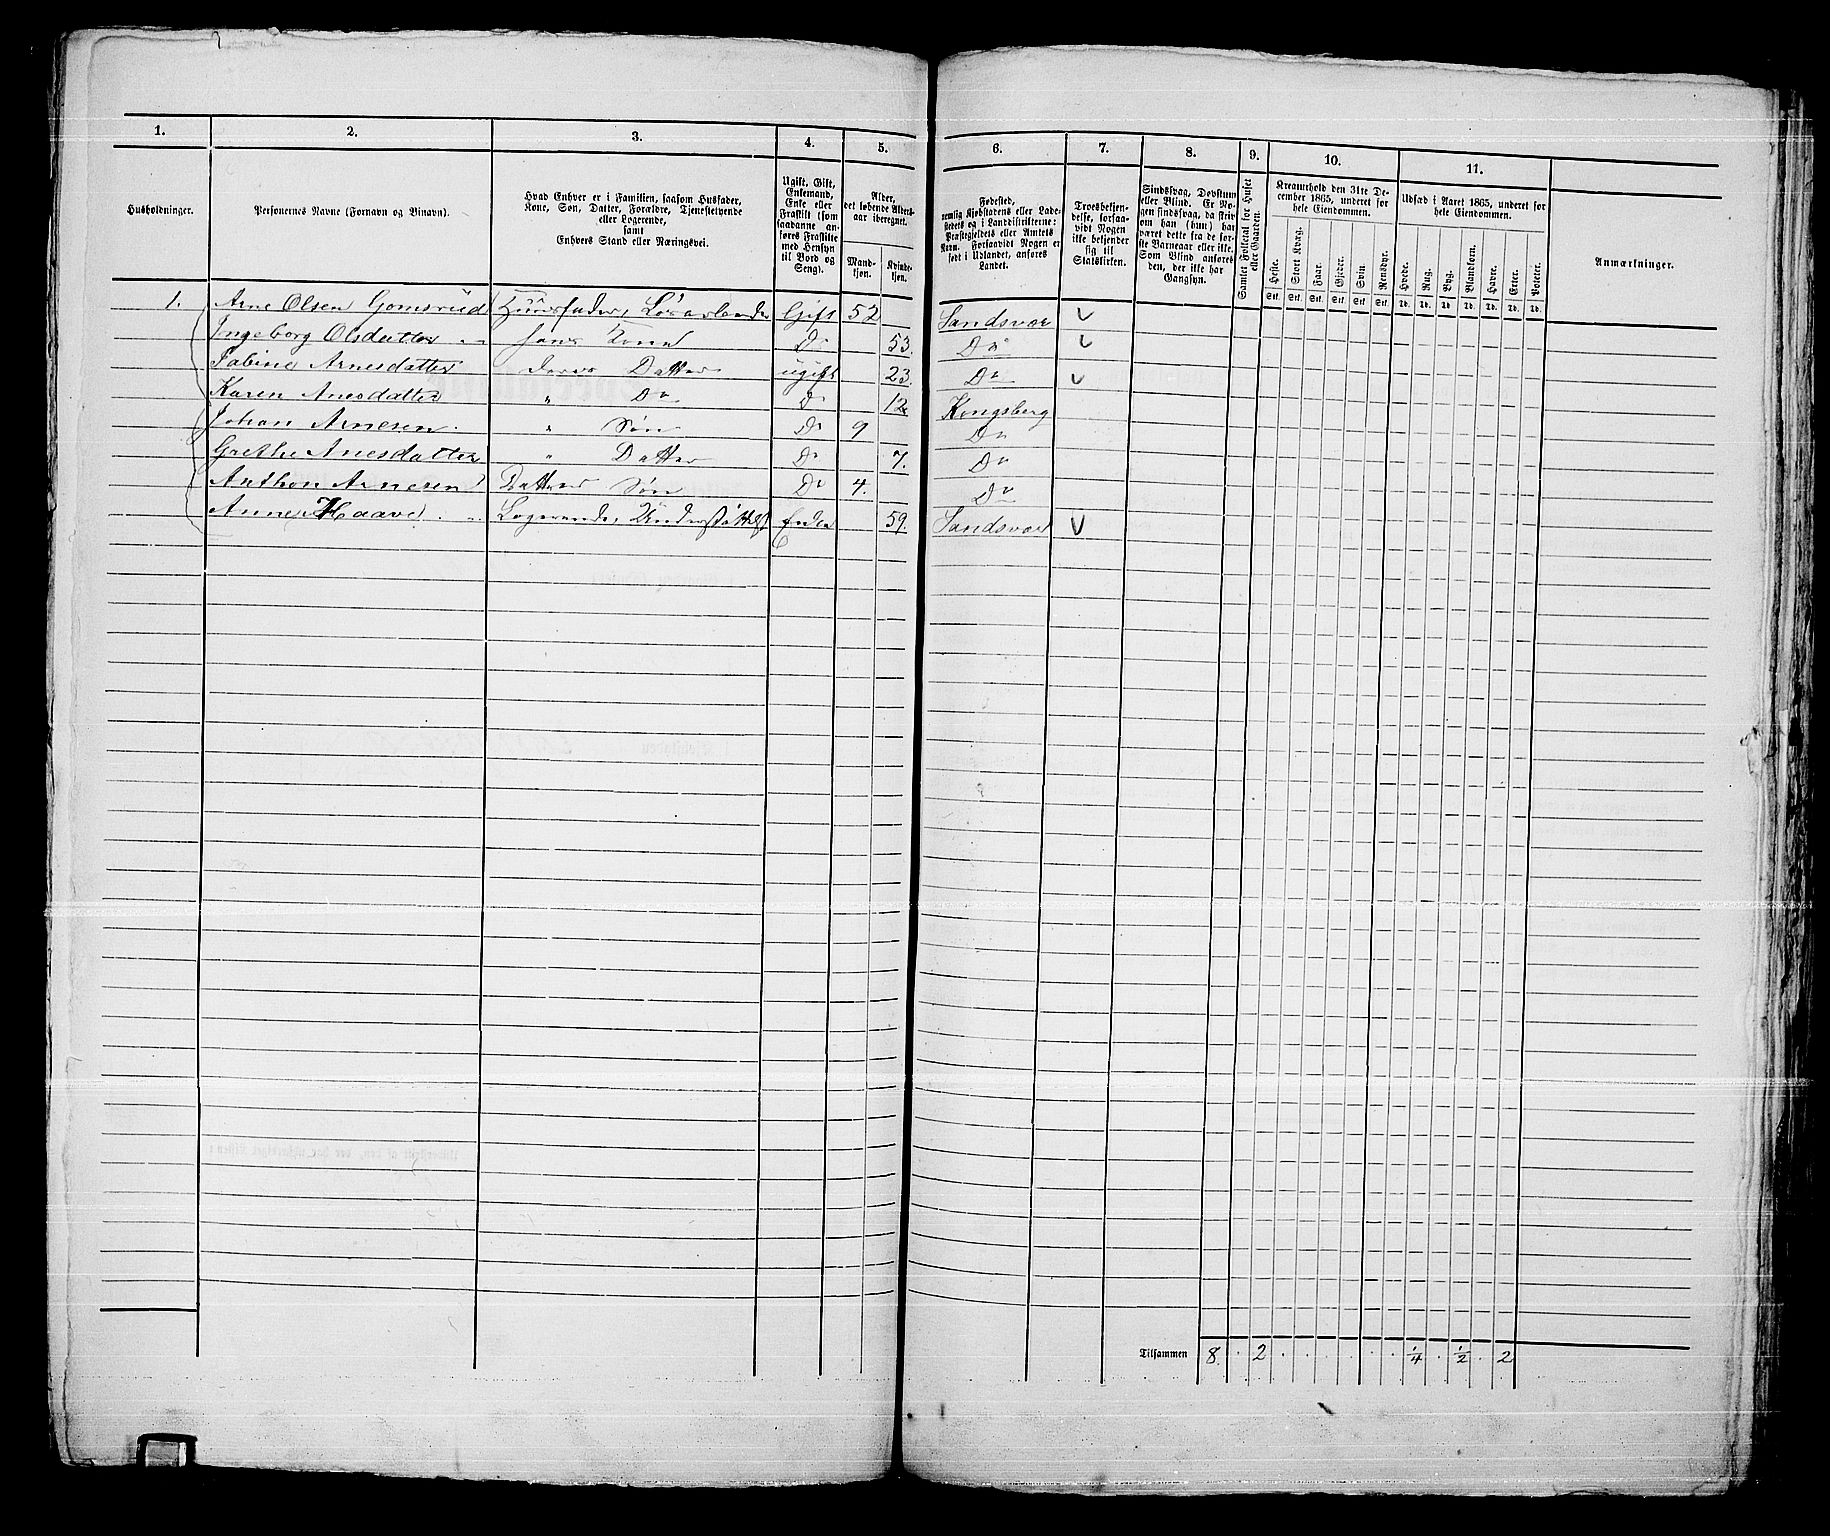 1. 2. 3. 4. 5. 6. 7. 8. 9. 10. 11.
Husholdninger.
Personernes Navne (Fornavn og Vinavn).
Hvad Enhver er i Familien, saasom Husfader,
Kone, Søn, Datter, Forældre, Tjenestetyende
eller Logerende,
samt
Enhvers Stand eller Næringsvei.
Ugift, Gift,
Enkemand,
Enke eller
Fraskilt (som
saadanne an-
føres Fraskilte
med Hensyn
til Bord og
Seng).
Alder,
det løbende Alders-
aar iberegnet.
Mand-
kjøn.
Kvinde-
kjøn.
Fødested,
nemlig Kjøbstadens eller Lade-
stedets og i Landdistrikterne:
Præstegjeldets eller Amtets
Navn. Forsaavidt Nogen er
født i Udlandet, anføres
Landet.
Troesbekjen-
delse, forsaa-
vidt Nogen
ikke bekjender
sig til
Statskirken.
Sindssvag, Døvstum
eller Blind. Er No-
gen sindssvag, da skriv
om han (hun) har
været dette fra de før-
ste Barneaar eller ikke.
Som Blind anføres
den, der ikke har
Gangsyn.
Samlet Folketal for Huset
eller Gaarden.
Kreaturhold den 31te De-
cember 1865, underet for
hele Eiendommen.
Heste. Stort Kvæg. Faar. Gjeder. Svin Rensdyr.
Stk. Stk. Stk. Stk. Stk. Stk.
Udsæd i Aaret 1865, underet for
hele Eiendommen.
Hvede. Rug. Byg. Blandkorn. Havre. Erter. Poteter.
Td. Td. Td. Td. Td. Td. Td.
Anmærkninger.
1. Arne Olsen Gomsrud Huusfader, Løsarbeider Gift 52 Sandsvær
Ingeborg Olsdatter hans Kone Do 53. Do
Sabine Arnesdatter deres Datter ugift 23. Do
Karen Arnesdatter " Do Do 12 Kongsberg
Johan Arnesen " Søn Do 9 Do
Grethe Arnesdatter " Datter Do 7. Do
Anthon Arnesen Datters Søn Do 4. Do
Anne Haave Logerende, Understøttelse Enke 59. Sandsvær
Tilsammen 8. 2 1/4 1/2 2